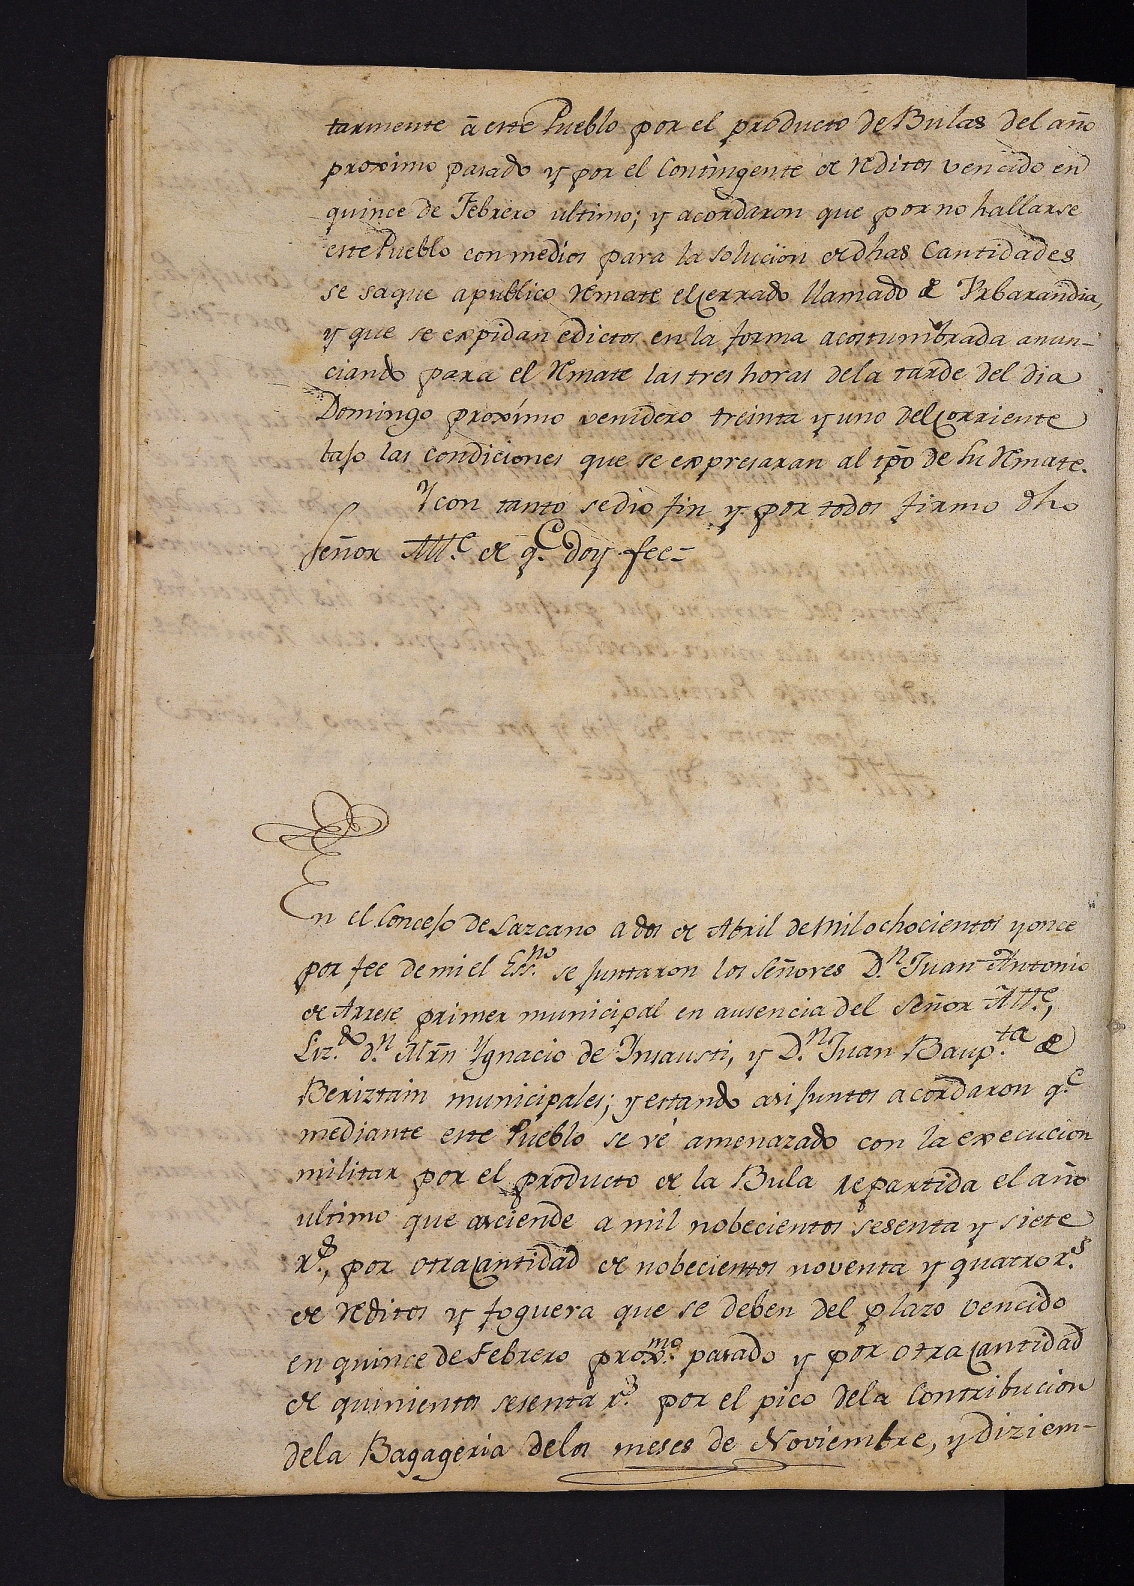 tarmente á este Pueblo por el producto de Bulas del año
proximo pasado y por el Contingente de reditos vencido en
quince de Febrero ultimo; y acordaron que por no hallarse
este Pueblo con medios para la solucion de dhas Cantidades
se saque a publico remate el cerrado llamado de Yrbarandia,
y que se expidan edictos en la forma acostumbrada anun-
ciando para el remate las tres horas de la tarde del dia
Domingo proximo venidero treinta y uno del corriente
bajo las condiciones que se expresaran al tpo de su remate.
Y con tanto se dio fin y por todos firmo dho
Señor Alle. de qe. doy fee=
En el Concejo de Lazcano a dos de Abril de mil ochocientos y once
por fee de mi el Essno. se juntaron los Señores Dn. Juan Antonio
de Arrese primer municipal en ausencia del Señor Alle.,
Liz.do dn. Mrn Ygnacio de Ynsausti, y Dn. Juan Baup.ta de
Beriztain municipales; y estando asi juntos acordaron qe.
mediante este Pueblo se vé amenazado con la execucion
militar por el producto de la Bula repartida el año
ultimo que asciende a mil nobecientos sesenta y siete
rs., por otra cantidad de nobecientos noventa y quatro rs.
de reditos y foguera que se deben del plazo vencido
en quince de Febrero proxmo. pasado y por otra cantidad
de quinientos sesenta rs. por el pico de la Contribucion
de la Bagageria de los meses de Noviembre, y Diziem-